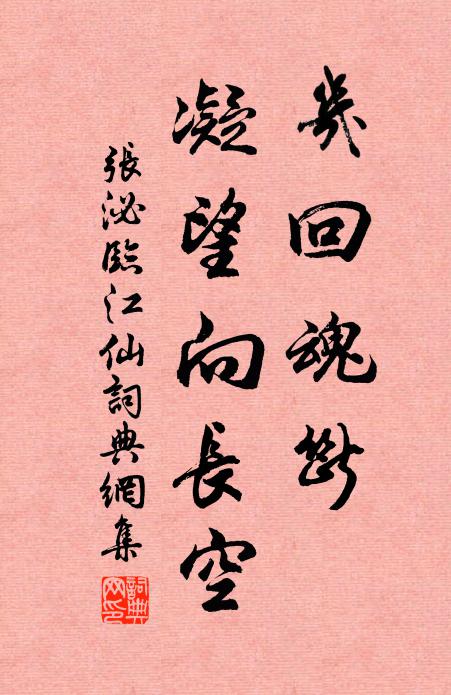 幾回魂斷
凝望向長空
張泌臨江仙詞典網集
詞典
网印